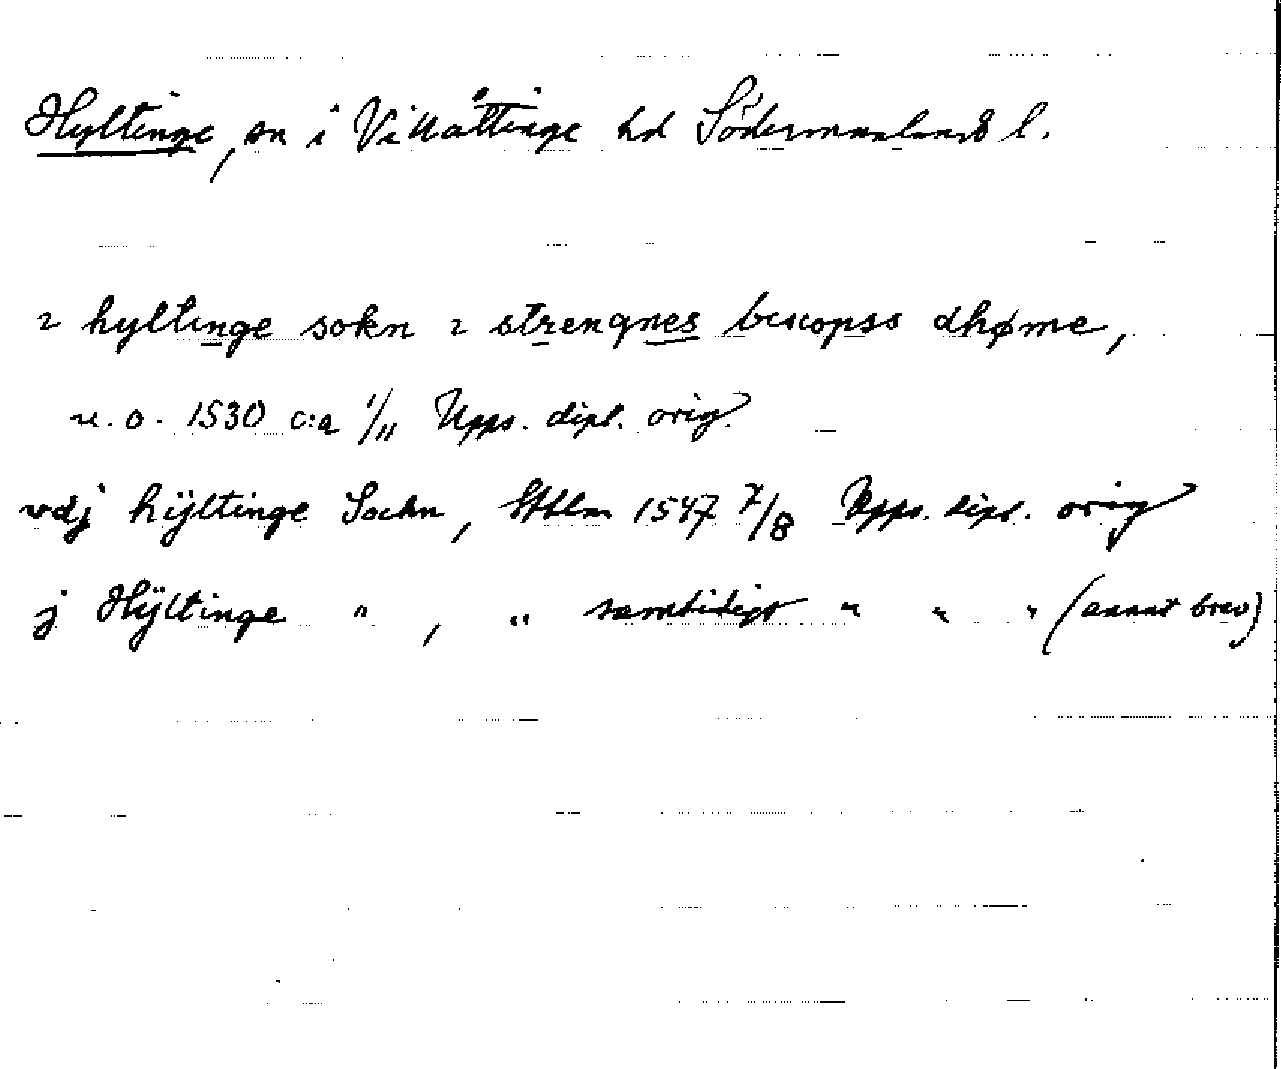 Hyltinge, sn i Villåttinge hd Södermanlands l.
ı hyltinge sokn ı strengnes biscopss dhøme,
u.o. 1530 c:a 1/11 Upps. dipl. orig.
vdj hÿltinge Sochn, Sthlm 1547 7/8 Upps. dipl. orig
j Hÿltinge " , " samtidigt " " " (annat brev)